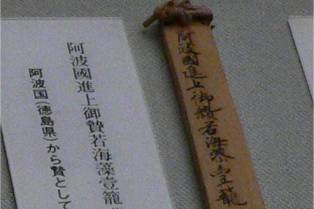 阿波國進上御贄若海藻壹籠
阿波国(徳島県)から贄として
阿波國進上御贄若海藻壹籠